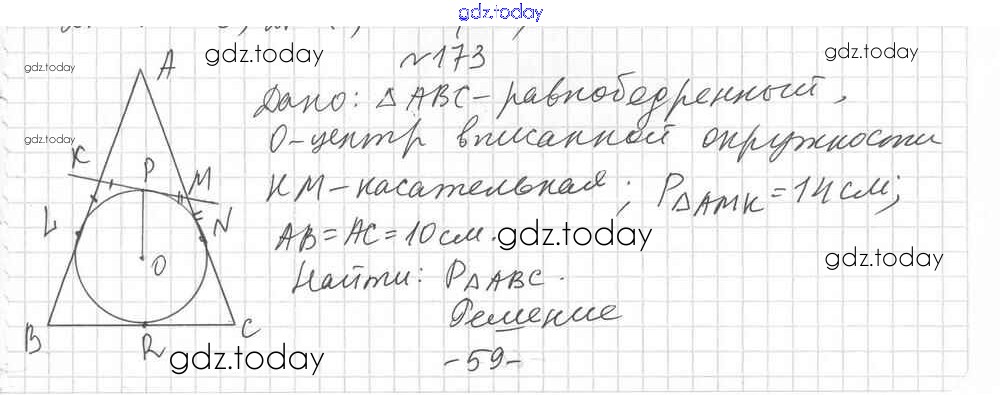 gdz.today
№173
gdz.today
gdz.today
gdz.today
Дано: △ABC - равнобедренный,
O - центр вписанной окружности
KM - касательная; P△AMK = 14 см;
AB = AC = 10 см.
gdz.today
gdz.today
gdz.today
Найти: P△ABC.
Решение
-59-
gdz.today
A
K
P
M
L
N
O
B
R
C